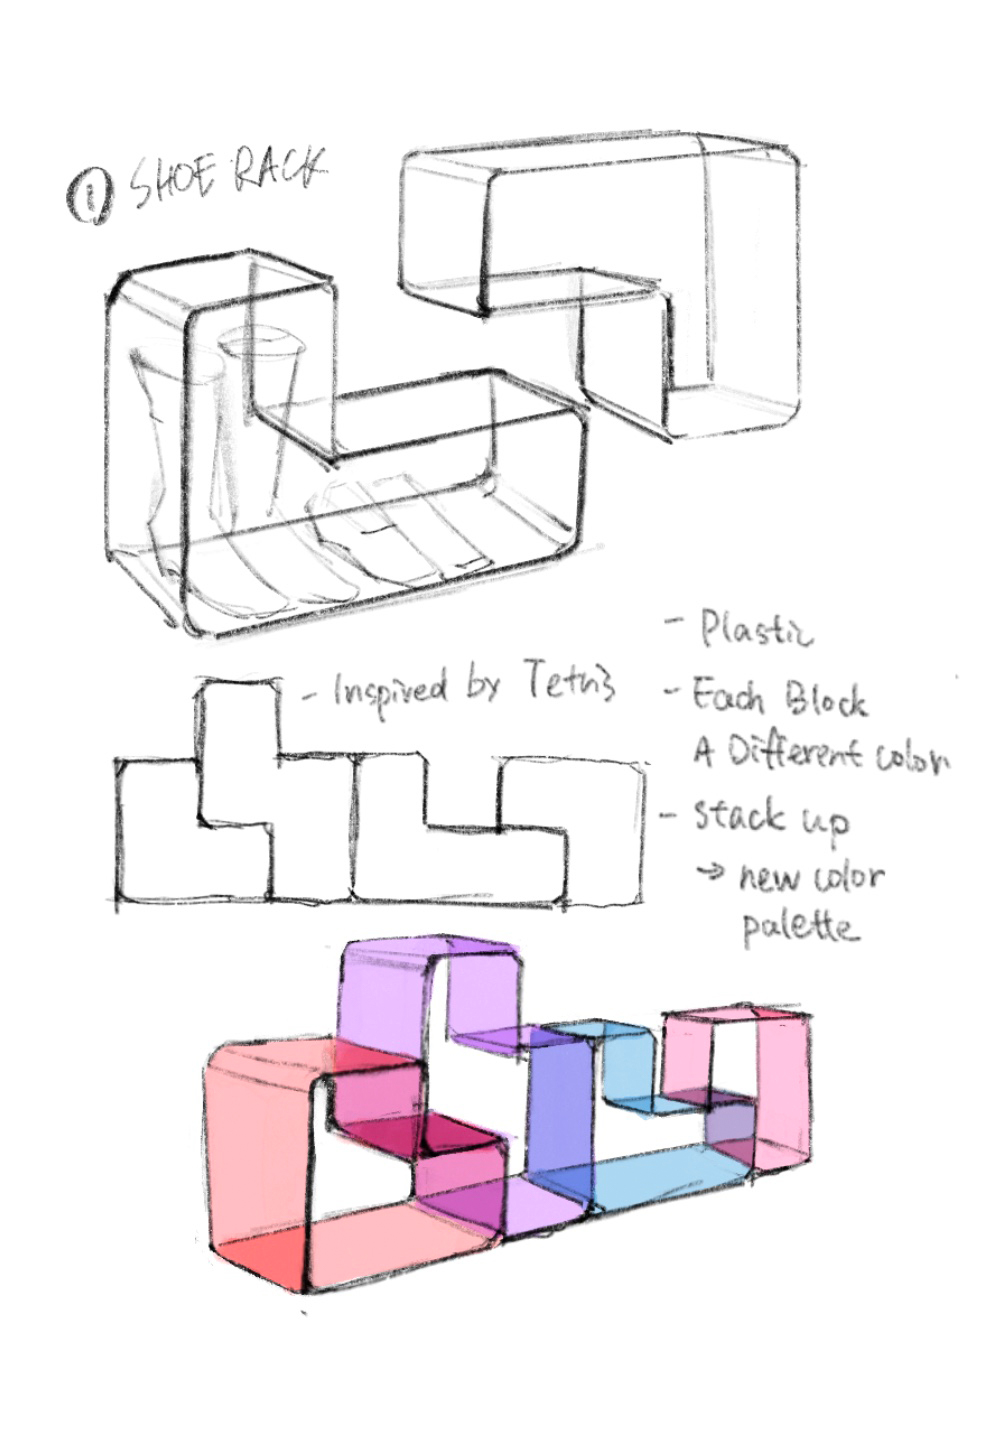 ① SHOE RACK
- Inspired by Tetris
- Plastic
- Each Block
A Different color
- stack up
→ new color
palette